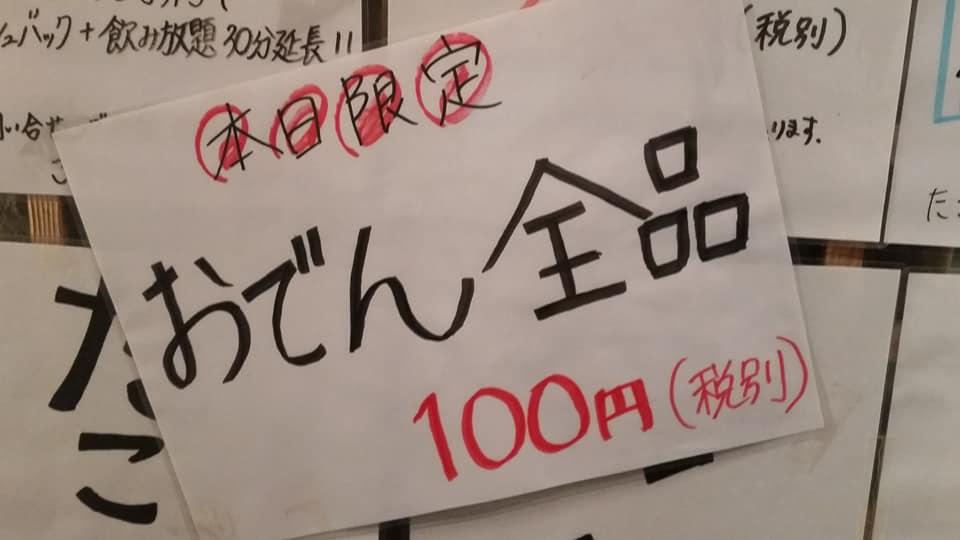 ュバック+飲み放題30分延長!!
(税別)
い合せ
ります.
本日限定
おでん全品
100円(税別)
た